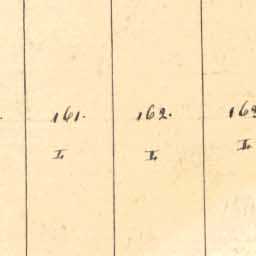 161. 162. 162
I. I. II.